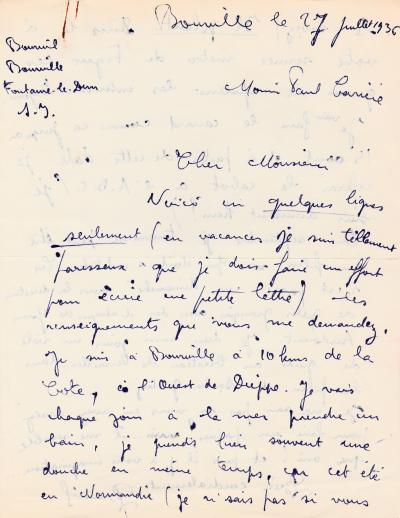 Bourville le 27 juillet 1936
Bourvil
Bourville
Fontaine-le-Dun
S. I.
Monsieur Paul Carrière
Cher Monsieur
Voici en quelques lignes
seulement (en vacances je suis tellement
paresseux que je dois faire un effort
pour écrire une petite lettre) les
renseignements que vous me demandez.
Je suis à Bourville à 10 kms de la
Côte, à l'Ouest de Dieppe. Je vais
chaque jour à la mer prendre un
bain, je prends bien souvent une
douche en même temps, car cet été
en Normandie (je n'sais pas si vous